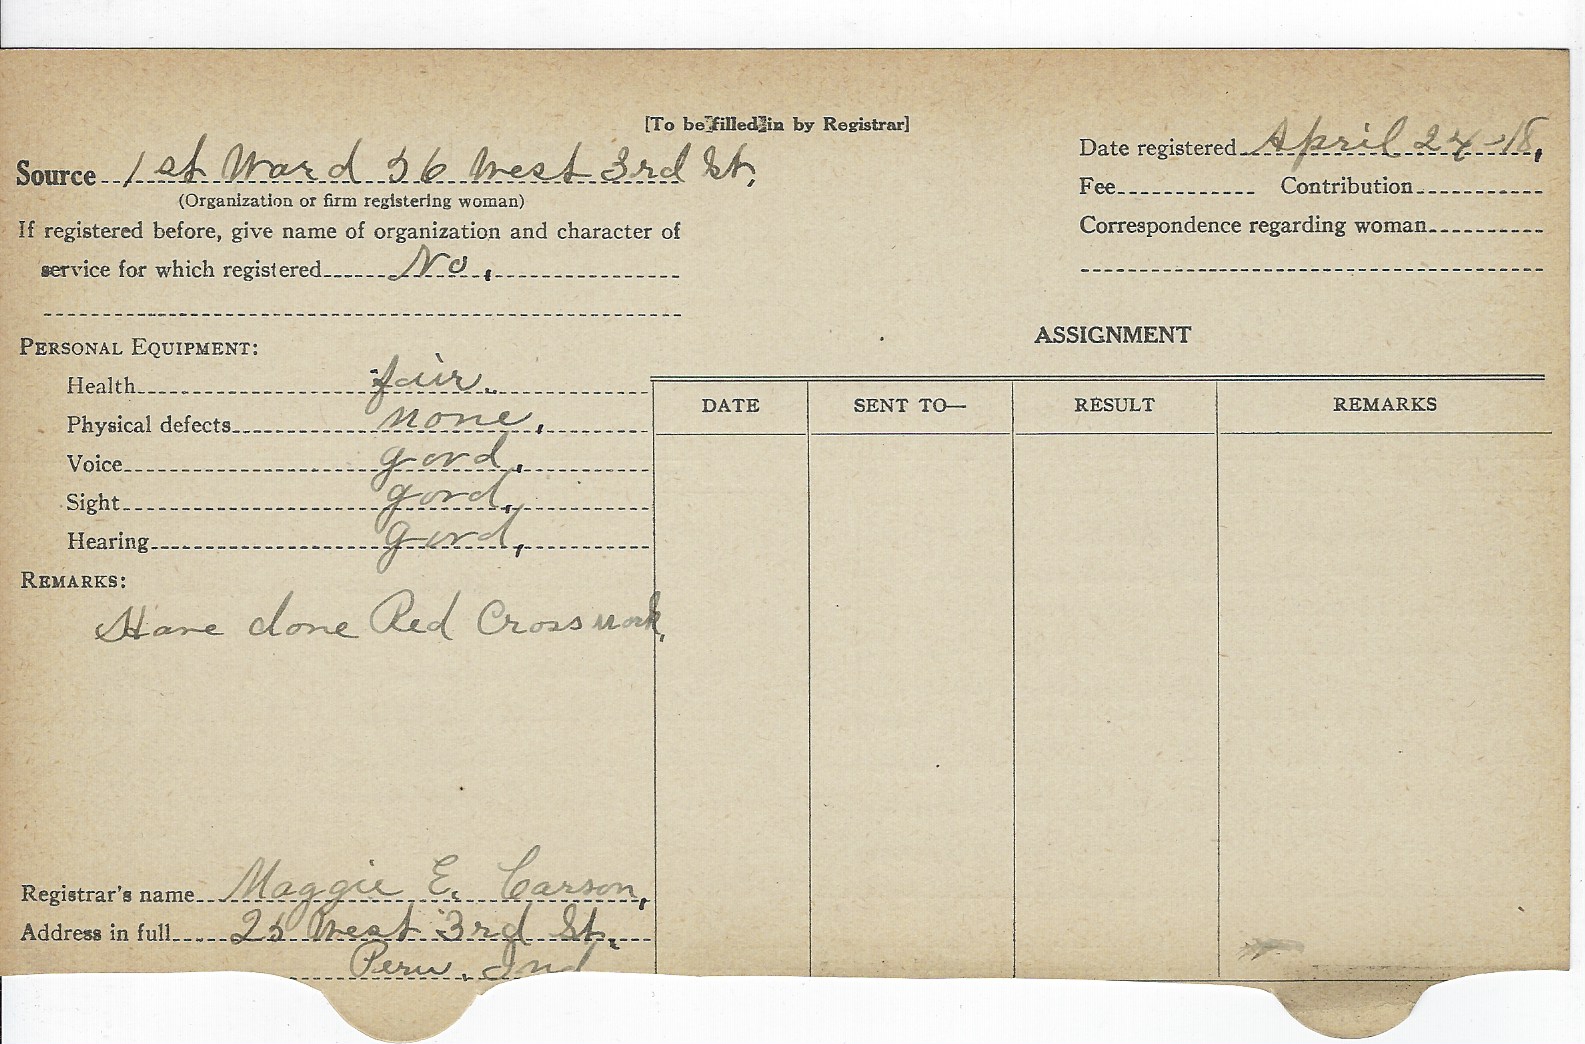 [To be filled in by Registrar]
Source 1st Ward 56 West 3rd St.
(Organization or firm registering woman)
If registered before, give name of organization and character of
service for which registered No.
Date registered April 24-18.
Fee Contribution
Correspondence regarding woman
PERSONAL EQUIPMENT:
Health fair.
Physical defects none.
Voice good.
Sight good.
Hearing good.
REMARKS:
Have done Red Cross work.
Registrar's name Maggie E. Carson.
Address in full 25 West 3rd St.
Peru, Ind
ASSIGNMENT
DATE SENT TO— RESULT REMARKS